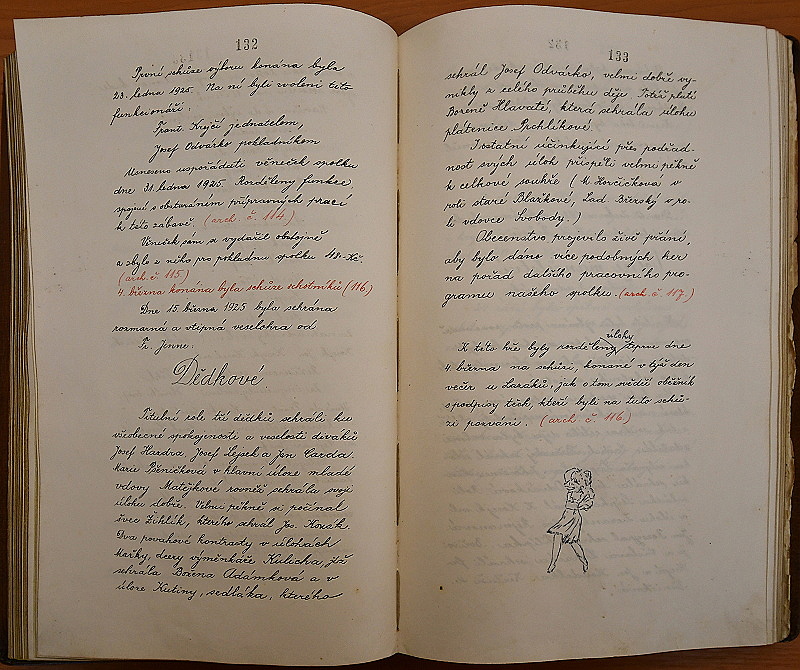 132
První schůze výboru konána byla
23. ledna 1925. Na ní byli zvoleni tito
funkcionáři:
Frant. Krejčí jednatelem,
Josef Odvárko pokladníkem
Usneseno uspořádati věneček spolku
dne 31. ledna 1925. Rozděleny funkce,
spojené s obstaráním přípravných prací
k této zábavě. (arch. č. 114)
Věneček sám se vydařil obstojně
a zbylo z něho pro pokladnu spolku 48.-Kč.
(arch. č 115)
4. března konána byla schůze ochotníků (116)
Dne 15. března 1925 byla sehrána
rozmarná a vtipná veselohra od
Fr. Jenne:
Dědkové.
Titulní role tří dědků sehráli ku
všeobecné spokojenosti a veselosti diváků
Josef Hazdra, Josef Lejsek a Jan Čarda.
Marie Pšeničková v hlavní úloze mladé
vdovy Matějkové rovněž sehrála svoji
úlohu dobře. Velmi pěkně si počínal
švec Žihlík, kterého sehrál Jos. Kozák.
Dva povahové kontrasty v úlohách
Mařky, dcery výminkáře Kulicha, již
sehrála Božena Adámková a v
úloze Kutiny, sedláka, kterého
133
sehrál Josef Odvárko, velmi dobře vy-
nikly z celého průběhu děje. Totéž platí
Boženě Hlavaté, která sehrála úlohu
plátenice Prchlíkové.
Ostatní účinkující přes podřad-
nost svých úloh přispěli velmi pěkně
k celkové souhře (M. Horčičková v
roli staré Blažkové, Lad. Břerský v ro-
li vdovce Svobody.)
Obecenstvo projevilo živě přání,
aby bylo dáno více podobných her
na pořad dalšího pracovního pro-
gramu našeho spolku. (arch. č. 117.)
K této hře byly rozděleny úlohy teprve dne
4 března na schůzi, konané v týž den
večer u Lazáků, jak o tom svědčí oběžník
s podpisy těch, kteří byli na tuto schů-
zi pozváni. (arch. č. 116)